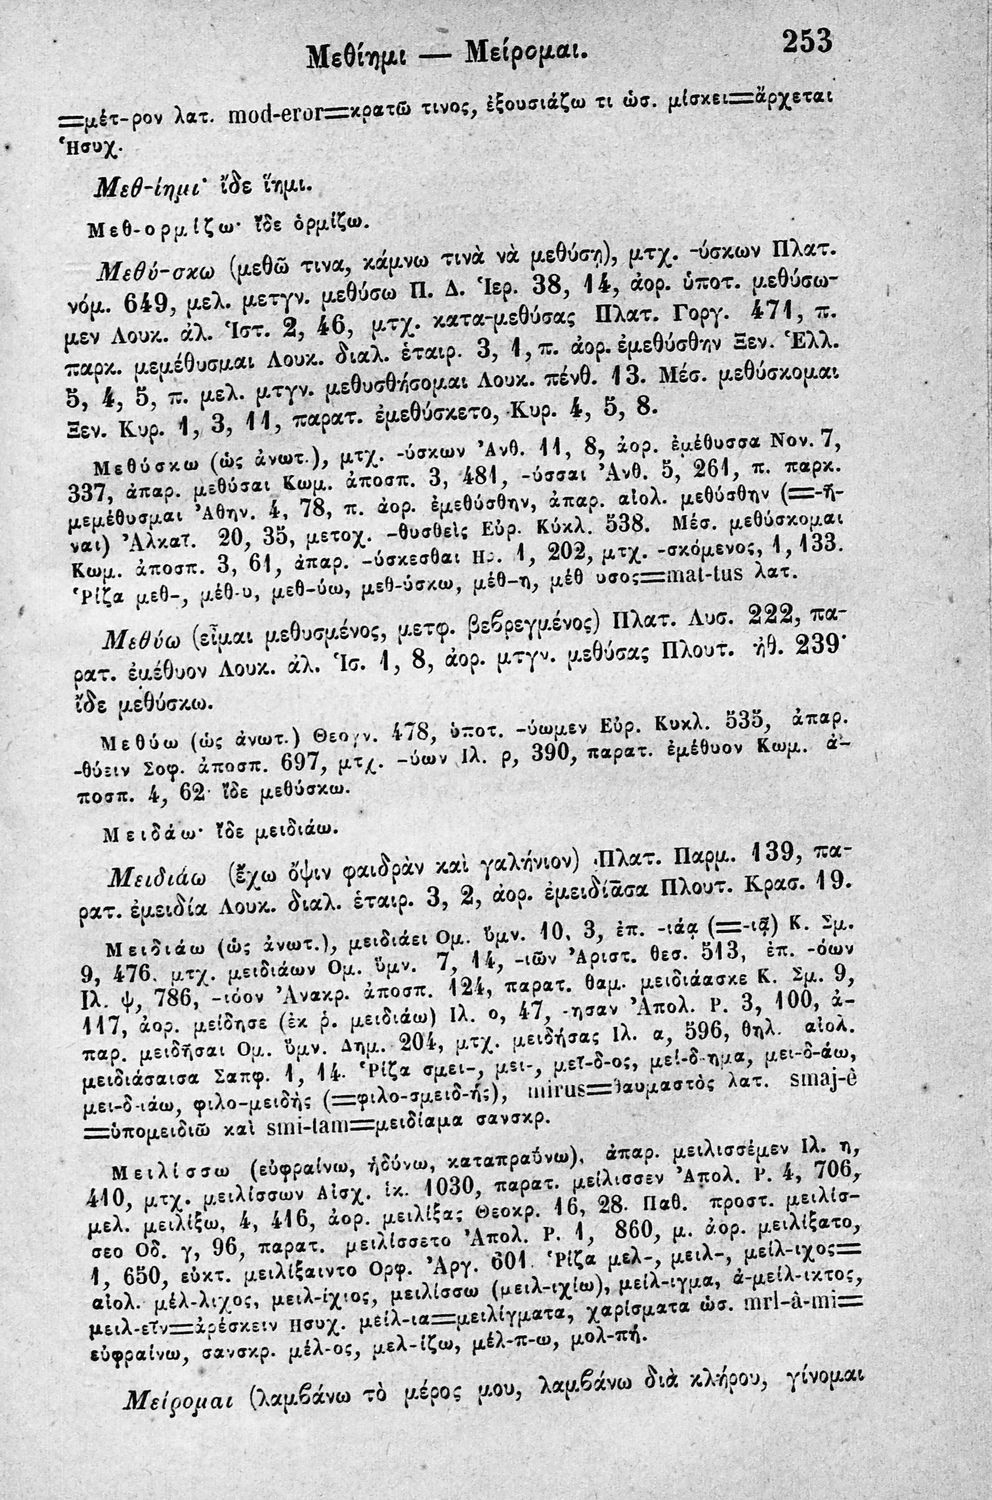 Μεθίημι — Μείρομαι.
253
=μέτ-ρον λατ. mod-eror=κρατῶ τινος, ἐξουσιάζω τι ὡσ. μίσκει=ἄρχεται
Ἡσυχ.
Μεθ-ίημι· ἴδε ἵημι.
Μεθ-ορμίζω· ἴδε ὁρμίζω.
Μεθύ-σκω (μεθῶ τινα, κάμνω τινὰ νὰ μεθύσῃ), μτχ. -ύσκων Πλατ.
νόμ. 649, μελ. μετγν. μεθύσω Π. Δ. Ἱερ. 38, 14, ἀορ. ὑποτ. μεθύσω-
μεν Λουκ. ἀλ. Ἱστ. 2, 46, μτχ. κατα-μεθύσας Πλατ. Γοργ. 471, π.
παρκ. μεμέθυσμαι Λουκ. διαλ. ἑταιρ. 3, 1, π. ἀορ. ἐμεθύσθην Ξεν. Ἑλλ.
5, 4, 5, π. μελ. μτγν. μεθυσθήσομαι Λουκ. πένθ. 13. Μέσ. μεθύσκομαι
Ξεν. Κυρ. 1, 3, 11, παρατ. ἐμεθύσκετο, Κυρ. 4, 5, 8.
Μεθύσκω (ὡς ἀνωτ.), μτχ. -ύσκων Ἀνθ. 11, 8, ἀορ. ἐμέθυσσα Νον. 7,
337, ἀπαρ. μεθύσαι Κωμ. ἀποσπ. 3, 481, -ύσσαι Ἀνθ. 5, 261, π. παρκ.
μεμέθυσμαι Ἀθην. 4, 78, π. ἀορ. ἐμεθύσθην, ἀπαρ. αἰολ. μεθύσθην (=-ῆ-
ναι) Ἀλκαῖ. 20, 35, μετοχ. -θυσθεὶς Εὐρ. Κύκλ. 538. Μέσ. μεθύσκομαι
Κωμ. ἀποσπ. 3, 61, ἀπαρ. -ύσκεσθαι Ηρ. 1, 202, μτχ. -σκόμενος, 1, 133.
Ῥίζα μεθ-, μέθ-υ, μεθ-ύω, μεθ-ύσκω, μέθ-η, μέθ υσος=mat-tus λατ.
Μεθύω (εἶμαι μεθυσμένος, μετφ. βεβρεγμένος) Πλατ. Λυσ. 222, πα-
ρατ. ἐμέθυον Λουκ. ἀλ. Ἱσ. 1, 8, ἀορ. μτγν. μεθύσας Πλουτ. ἠθ. 239·
ἴδε μεθύσκω.
Μεθύω (ὡς ἀνωτ.) Θεογν. 478, ὑποτ. -ύωμεν Εὐρ. Κυκλ. 535, ἀπαρ.
-θύειν Σοφ. ἀποσπ. 697, μτχ. -ύων Ιλ. ρ, 390, παρατ. ἐμέθυον Κωμ. ἀ-
ποσπ. 4, 62· ἴδε μεθύσκω.
Μειδάω· ἴδε μειδιάω.
Μειδιάω (ἔχω ὄψιν φαιδρὰν καὶ γαλήνιον) Πλατ. Παρμ. 139, πα-
ρατ. ἐμειδία Λουκ. διαλ. ἑταιρ. 3, 2, ἀορ. ἐμειδίᾶσα Πλουτ. Κρασ. 19.
Μειδιάω (ὡς ἀνωτ.), μειδιάει Ομ. ὕμν. 10, 3, ἐπ. -ιάᾳ (=-ιᾷ) Κ. Σμ.
9, 476. μτχ. μειδιάων Ομ. ὕμν. 7, 14, -ιῶν Ἀριστ. θεσ. 513, ἐπ. -όων
Ιλ. ψ, 786, -ιόον Ἀνακρ. ἀποσπ. 124, παρατ. θαμ. μειδιάασκε Κ. Σμ. 9,
117, ἀορ. μείδησε (ἐκ ῥ. μειδιάω) Ιλ. ο, 47, -ησαν Ἀπολ. Ρ. 3, 100, ἀ-
παρ. μειδῆσαι Ομ. ὕμν. Δημ. 204, μτχ. μειδήσας Ιλ. α, 596, θηλ. αἰολ.
μειδιάσαισα Σαπφ. 1, 14. Ῥίζα σμει-, μει-, μεῖ-δ-ος, μεί-δ-ημα, μει-δ-άω,
μει-δ-ιάω, φιλο-μειδὴς (=φιλο-σμειδ-ής), mirus=θαυμαστὸς λατ. smaj-ê
=ὑπομειδιῶ καὶ smi-tam=μειδίαμα σανσκρ.
Μειλίσσω (εὐφραίνω, ἡδύνω, καταπραΰνω), ἀπαρ. μειλισσέμεν Ιλ. η,
410, μτχ. μειλίσσων Αἰσχ. ἱκ. 1030, παρατ. μείλισσεν Ἀπολ. Ρ. 4, 706,
μελ. μειλίξω, 4, 416, ἀορ. μειλίξας Θεοκρ. 16, 28. Παθ. προστ. μειλίσ-
σεο Οδ. γ, 96, παρατ. μειλίσσετο Ἀπολ. Ρ. 1, 860, μ. ἀορ. μειλίξατο,
1, 650, εὐκτ. μειλίξαιντο Ορφ. Ἀργ. 601. Ῥίζα μελ-, μειλ-, μείλ-ιχος=
αἰολ. μέλ-λιχος, μειλ-ίχιος, μειλίσσω (μειλ-ιχίω), μείλ-ιγμα, ἀ-μείλ-ικτος,
μειλ-εῖν=ἀρέσκειν Ησυχ. μείλ-ια=μειλίγματα, χαρίσματα ὡσ. mrl-â-mi=
εὐφραίνω, σανσκρ. μέλ-ος, μελ-ίζω, μέλ-π-ω, μολ-πή.
Μείρομαι (λαμβάνω τὸ μέρος μου, λαμβάνω διὰ κλήρου, γίνομαι